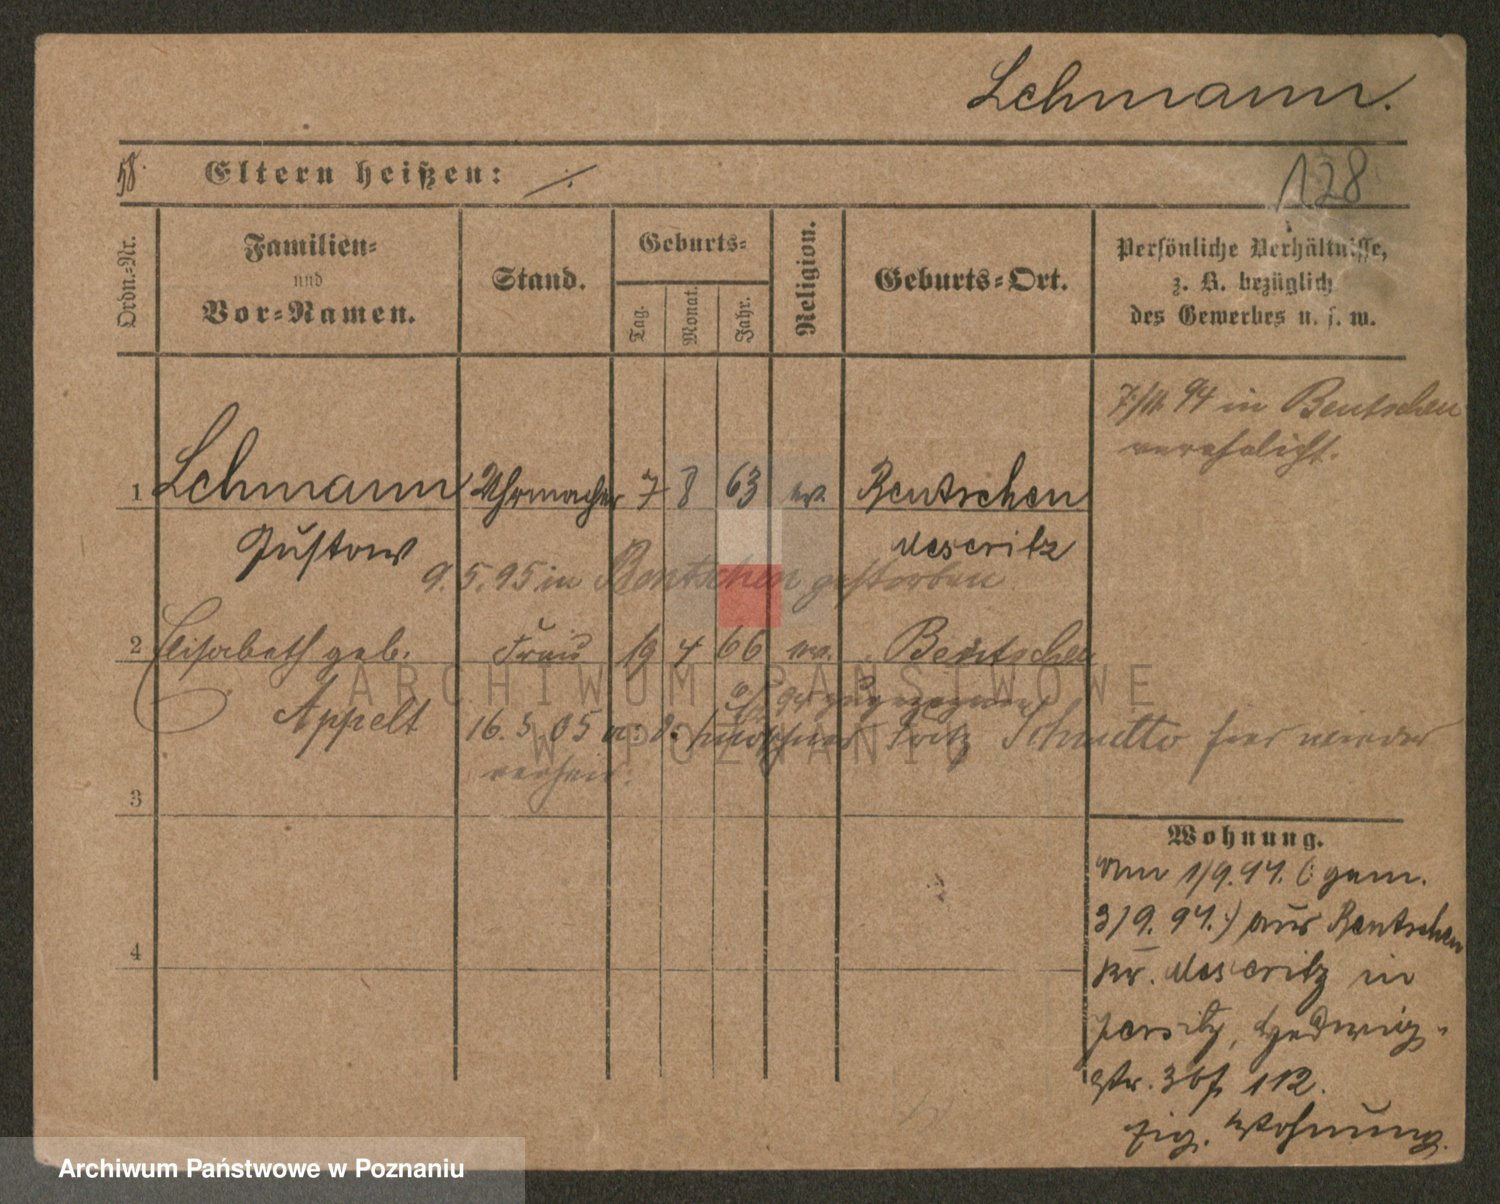 Lehmann.
58.
Eltern heißen: ./.
128
Ordn.-Nr.
Familien-
und
Vor-Namen.
Stand.
Geburts-
Tag.
Monat.
Jahr.
Religion.
Geburts-Ort.
Persönliche Verhältnisse,
z. B. bezüglich
des Gewerbes u. s. w.
7/11. 94 in Bentschen
verehelicht.
1 Lehmann Uhrmacher 7 8 63 ev. Bentschen
Gustav Meseritz
9.5.95 in Bentschen gestorben
2 Elisabeth geb. Frau 19 4 66 ev. Bentschen
Appelt 16.5.05 Fritz hier wieder
verheir.
3
4
Wohnung.
Vom 1/9.94. (: gem.
3/9.94.:) aus Bentschen
Kr. Meseritz in
Jersitz, Hedwig-
str. 3 bf 112.
eig. Wohnung.
ARCHIWUM PAŃSTWOWE
W POZNANIU
Archiwum Państwowe w Poznaniu